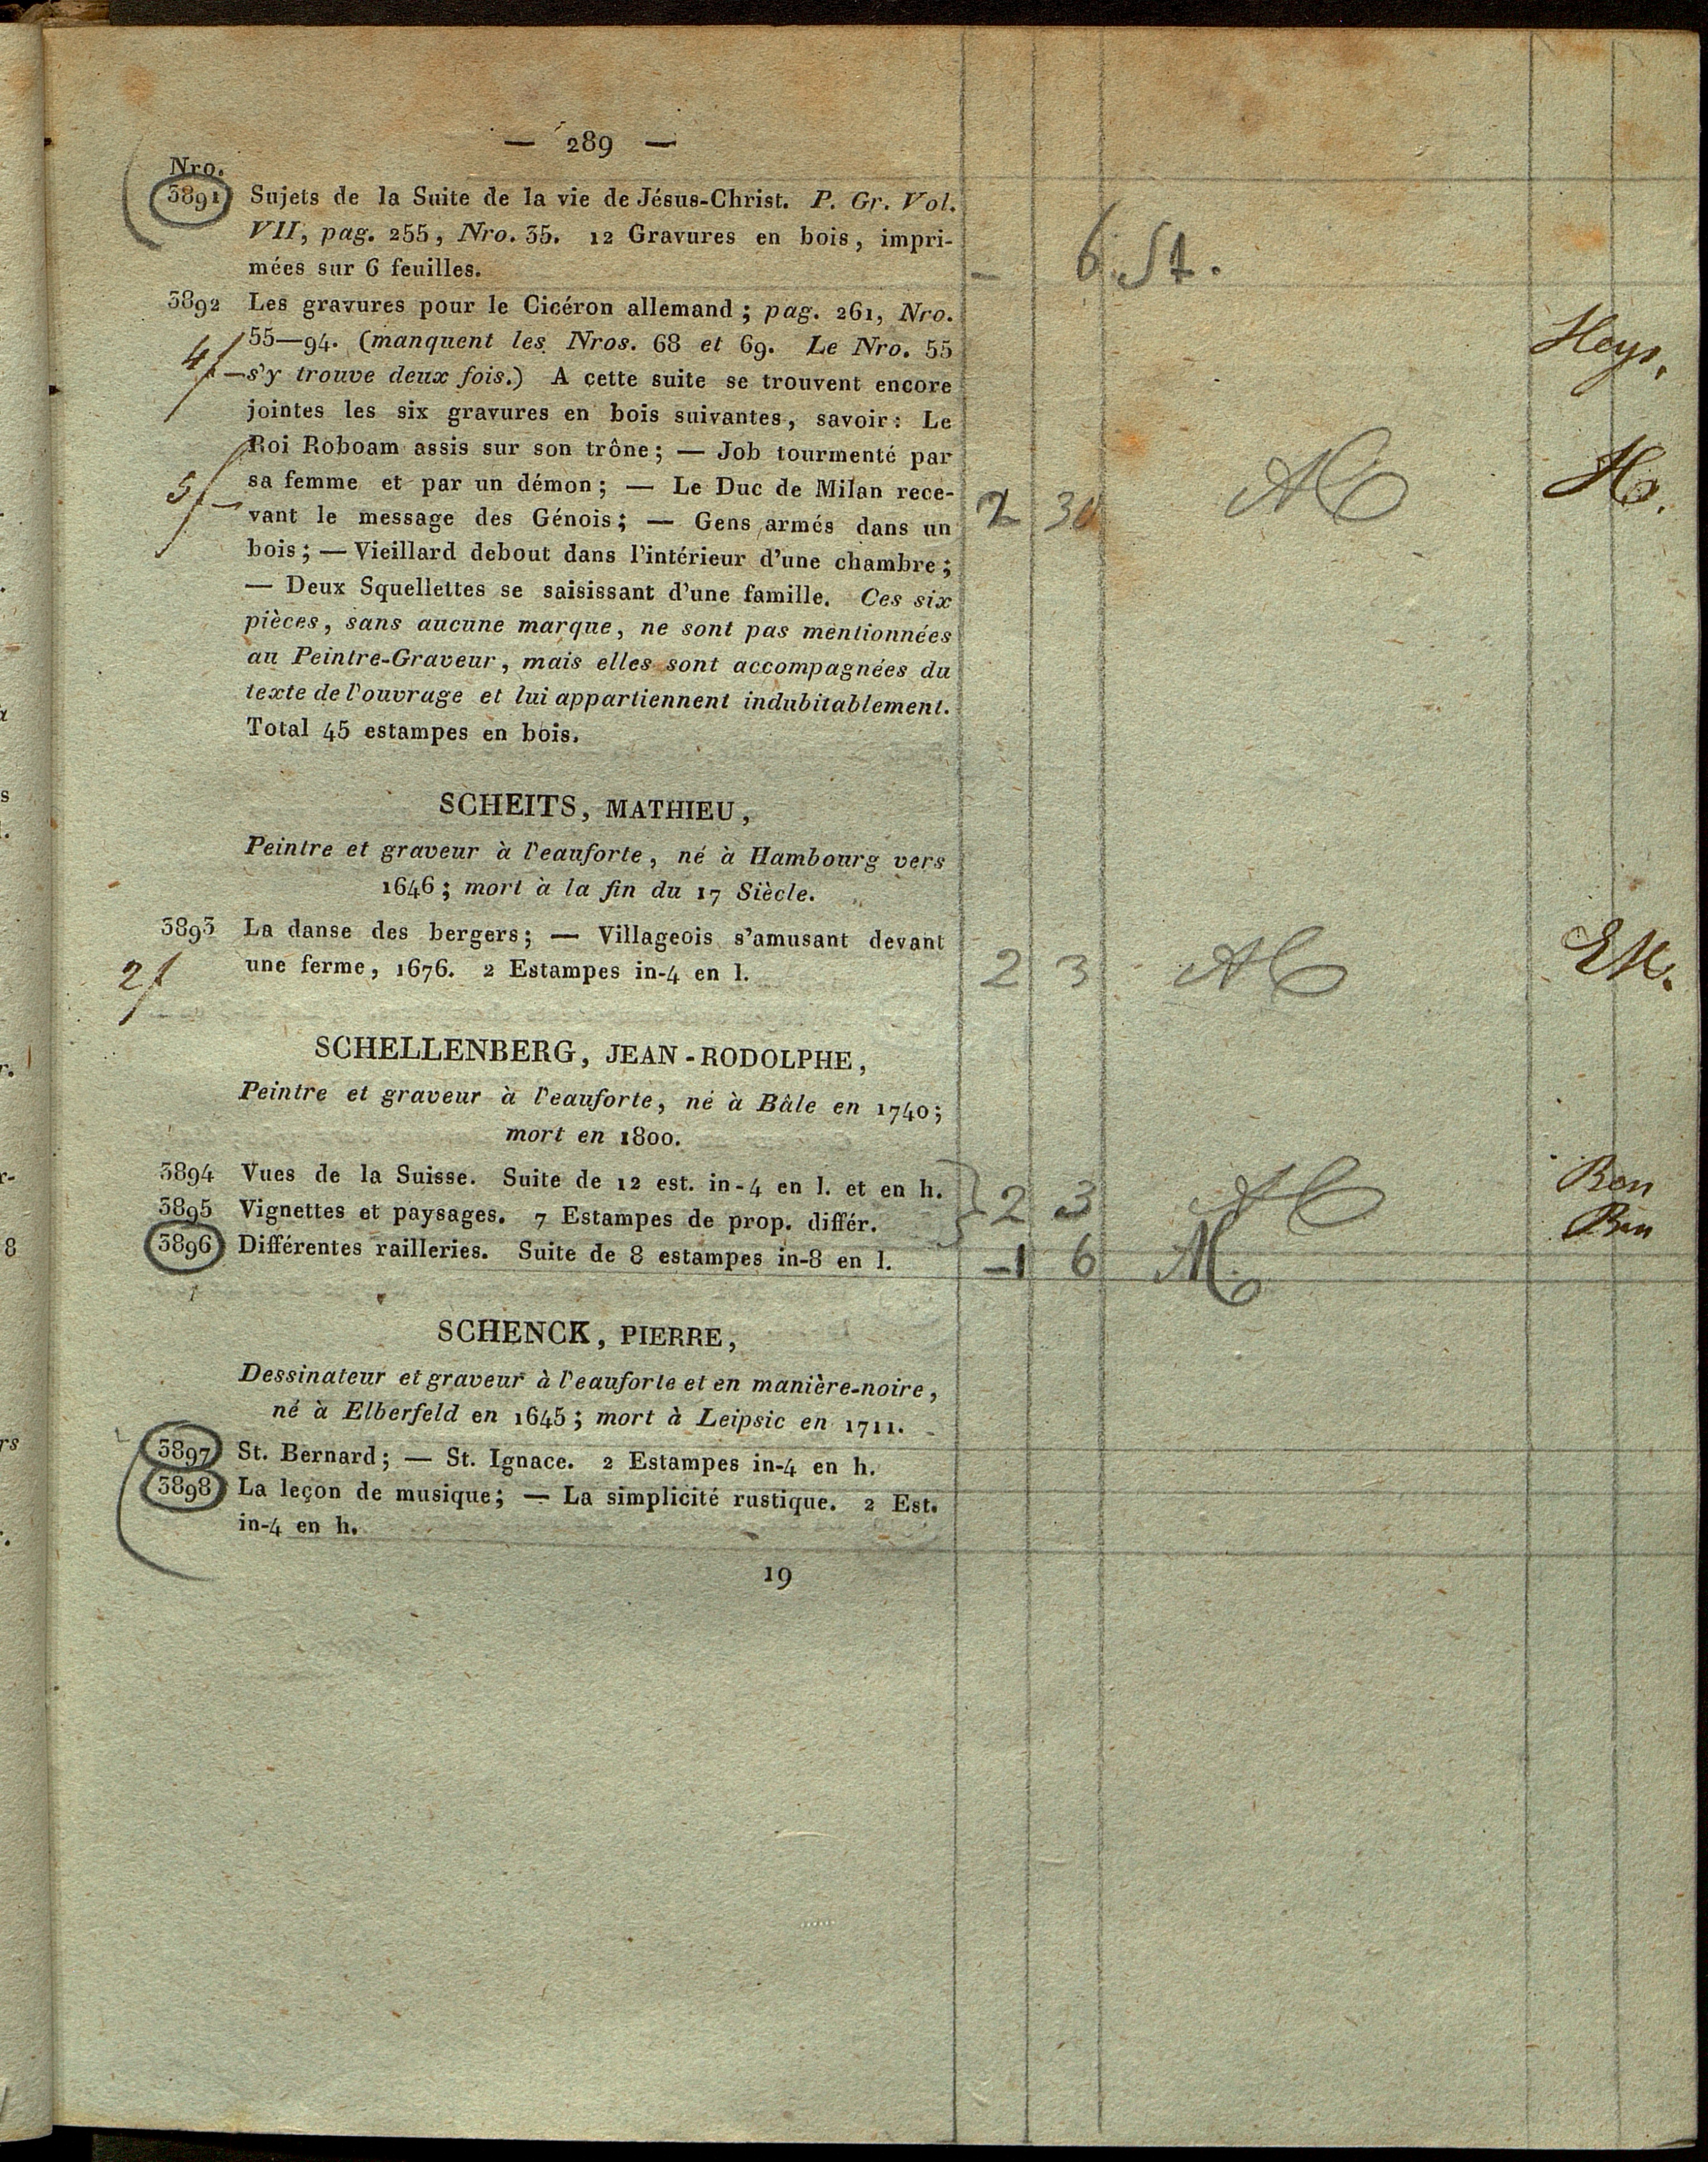 — 289 —
Nro.
3891 Sujets de la Suite de la vie de Jésus-Christ. P. Gr. Vol.
VII, pag. 255, Nro. 35. 12 Gravures en bois, impri-
mées sur 6 feuilles.
— 6 St.
3892 Les gravures pour le Cicéron allemand; pag. 261, Nro.
55—94. (manquent les Nros. 68 et 69. Le Nro. 55
4f — s'y trouve deux fois.) A cette suite se trouvent encore
jointes les six gravures en bois suivantes, savoir: Le
Roi Roboam assis sur son trône; — Job tourmenté par
5f — sa femme et par un démon; — Le Duc de Milan rece- 2 30 H.
vant le message des Génois; — Gens armés dans un
bois; — Vieillard debout dans l'intérieur d'une chambre;
— Deux Squellettes se saisissant d'une famille. Ces six
pièces, sans aucune marque, ne sont pas mentionnées
au Peintre-Graveur, mais elles sont accompagnées du
texte de l'ouvrage et lui appartiennent indubitablement.
Total 45 estampes en bois.
SCHEITS, MATHIEU,
Peintre et graveur à l'eauforte, né à Hambourg vers
1646; mort à la fin du 17 Siècle.
3893 La danse des bergers; — Villageois s'amusant devant
2f une ferme, 1676. 2 Estampes in-4 en l. 2 3
SCHELLENBERG, JEAN-RODOLPHE,
Peintre et graveur à l'eauforte, né à Bâle en 1740;
mort en 1800.
3894 Vues de la Suisse. Suite de 12 est. in-4 en l. et en h. Ben
3895 Vignettes et paysages. 7 Estampes de prop. différ. } 2 3 Ben
3896 Différentes railleries. Suite de 8 estampes in-8 en l. —1 6
SCHENCK, PIERRE,
Dessinateur et graveur à l'eauforte et en manière-noire,
né à Elberfeld en 1645; mort à Leipsic en 1711.
3897 St. Bernard; — St. Ignace. 2 Estampes in-4 en h.
3898 La leçon de musique; — La simplicité rustique. 2 Est.
in-4 en h.
19